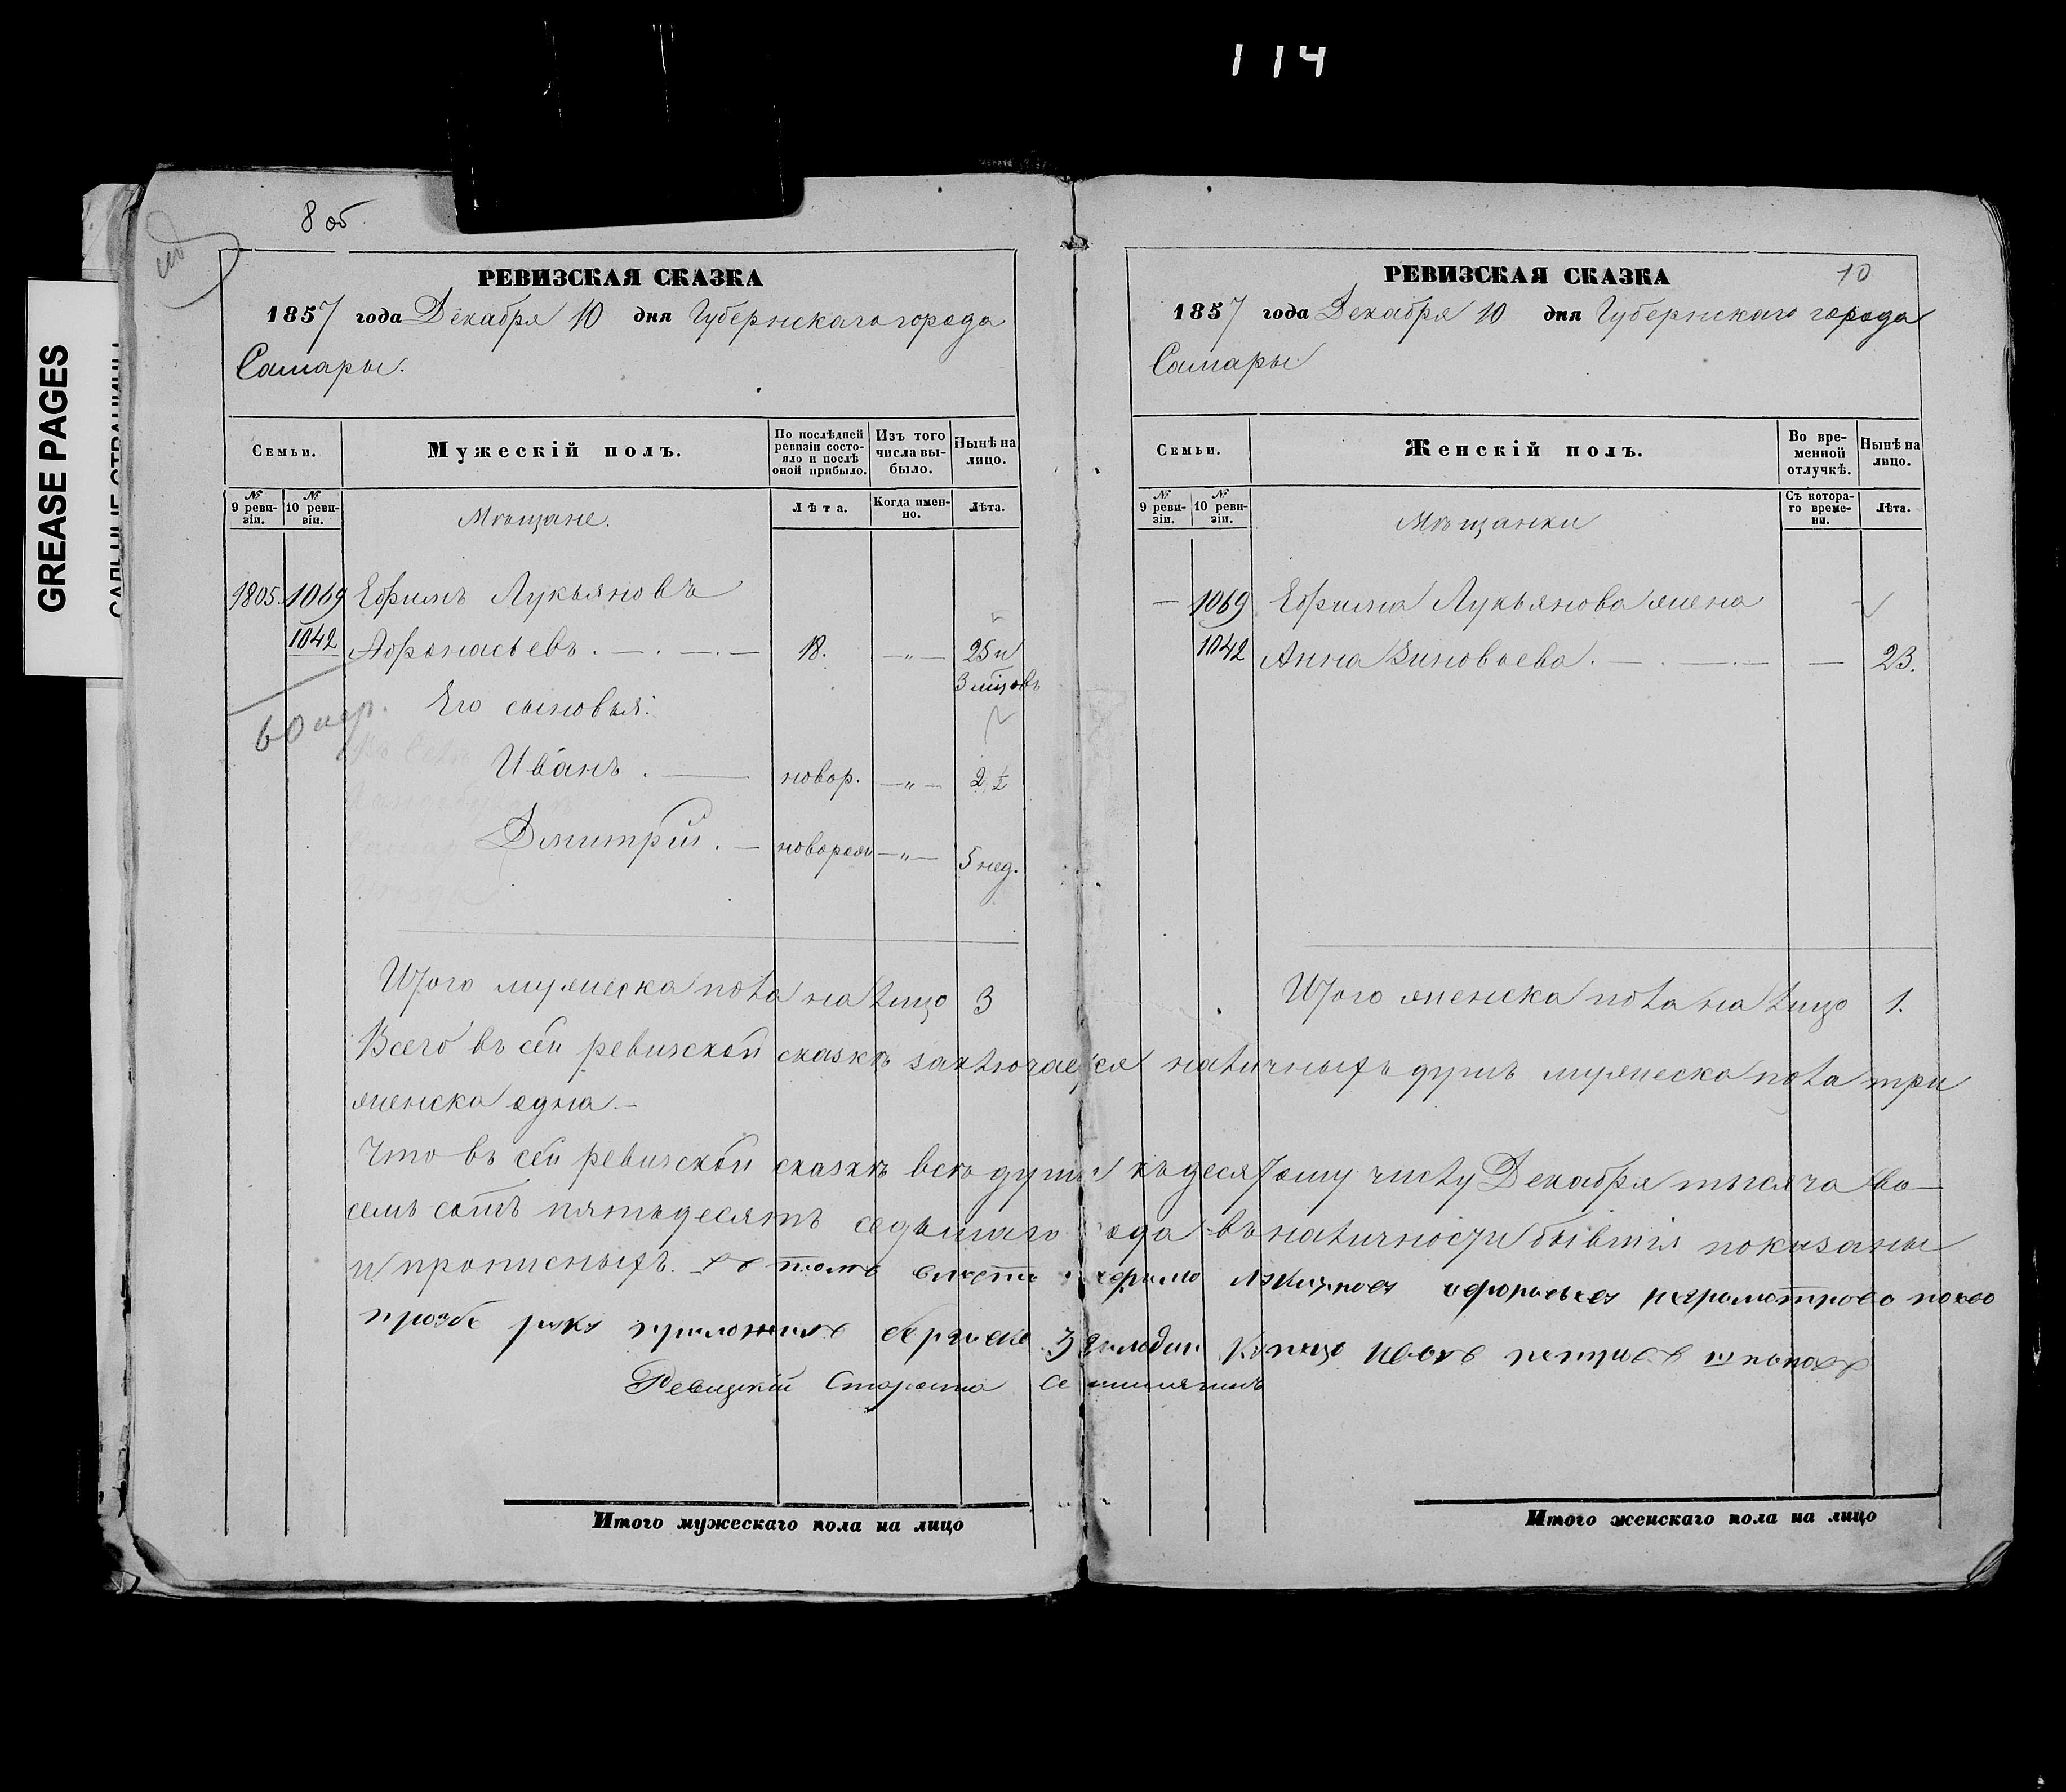 114
GREASE PAGES
8 об
РЕВИЗСКАЯ СКАЗКА
1857 года Декабря 10 дня Губернскаго города
Самары.
Семьи.
Мужескій полъ.
По послѣдней ревизіи состояло и послѣ оной прибыло.
Изъ того числа выбыло.
Нынѣ на лицо.
№ 9 ревизіи.
№ 10 ревизіи.
Мѣщане.
Лѣта.
Когда именно.
Лѣта.
1805. 1069 Ефимъ Лукьяновъ
1042 Афонасьевъ . — . — . — 18. — „ — 25 и
3 мѣс
60
Его сыновья:
Иванъ . — новор. — „ — 2 ½
Дмитрій . — новорож — „ — 5 нед.
Итого мужеска пола на лицо 3
РЕВИЗСКАЯ СКАЗКА 10
1857 года Декабря 10 дня Губернскаго города
Самары
Семьи.
Женскій полъ.
Во временной отлучкѣ.
Нынѣ на лицо.
№ 9 ревизіи.
№ 10 ревизіи.
Мѣщанки
Съ котораго времени.
Лѣта.
— 1069 Ефима Лукьянова жена
1042 Анна Зиновьева . — . — . — — 23.
Итого женска пола на лицо 1.
Всего въ сей ревизской сказкѣ заключается наличныхъ душъ мужеска пола три
женска одна. —
Что въ сей ревизской сказкѣ всѣ души къ десятому числу Декабря тысяча во-
семь сотъ пятьдесятъ седьмаго года въ наличности бывшія показаны
и прописныхъ
прозбе руку приложилъ
Староста
Итого мужескаго пола на лицо
Итого женскаго пола на лицо